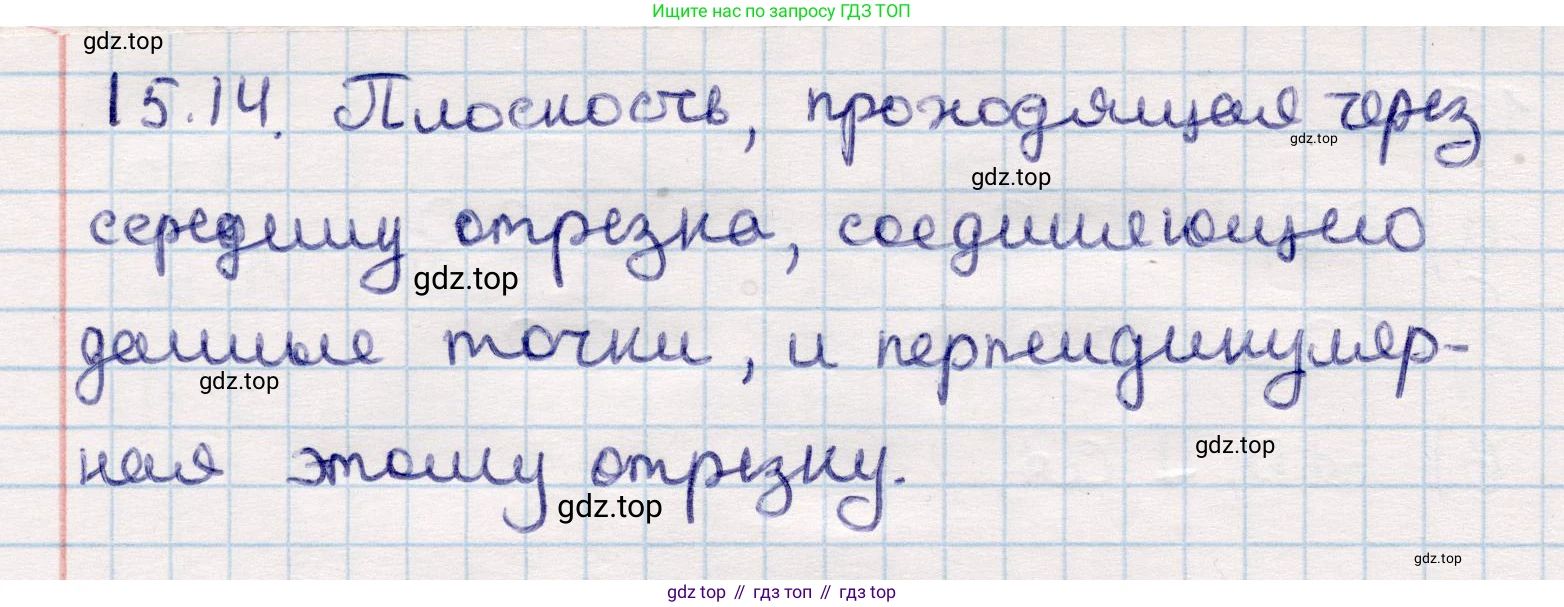 Ищите нас по запросу ГДЗ ТОП
gdz.top
15.14. Плоскость, проходящая через
gdz.top
gdz.top
середину отрезка, соединяющего
gdz.top
данные точки, и перпендикуляр-
gdz.top
gdz.top
ная этому отрезку.
gdz.top
gdz.top
gdz top // гдз топ // гдз top